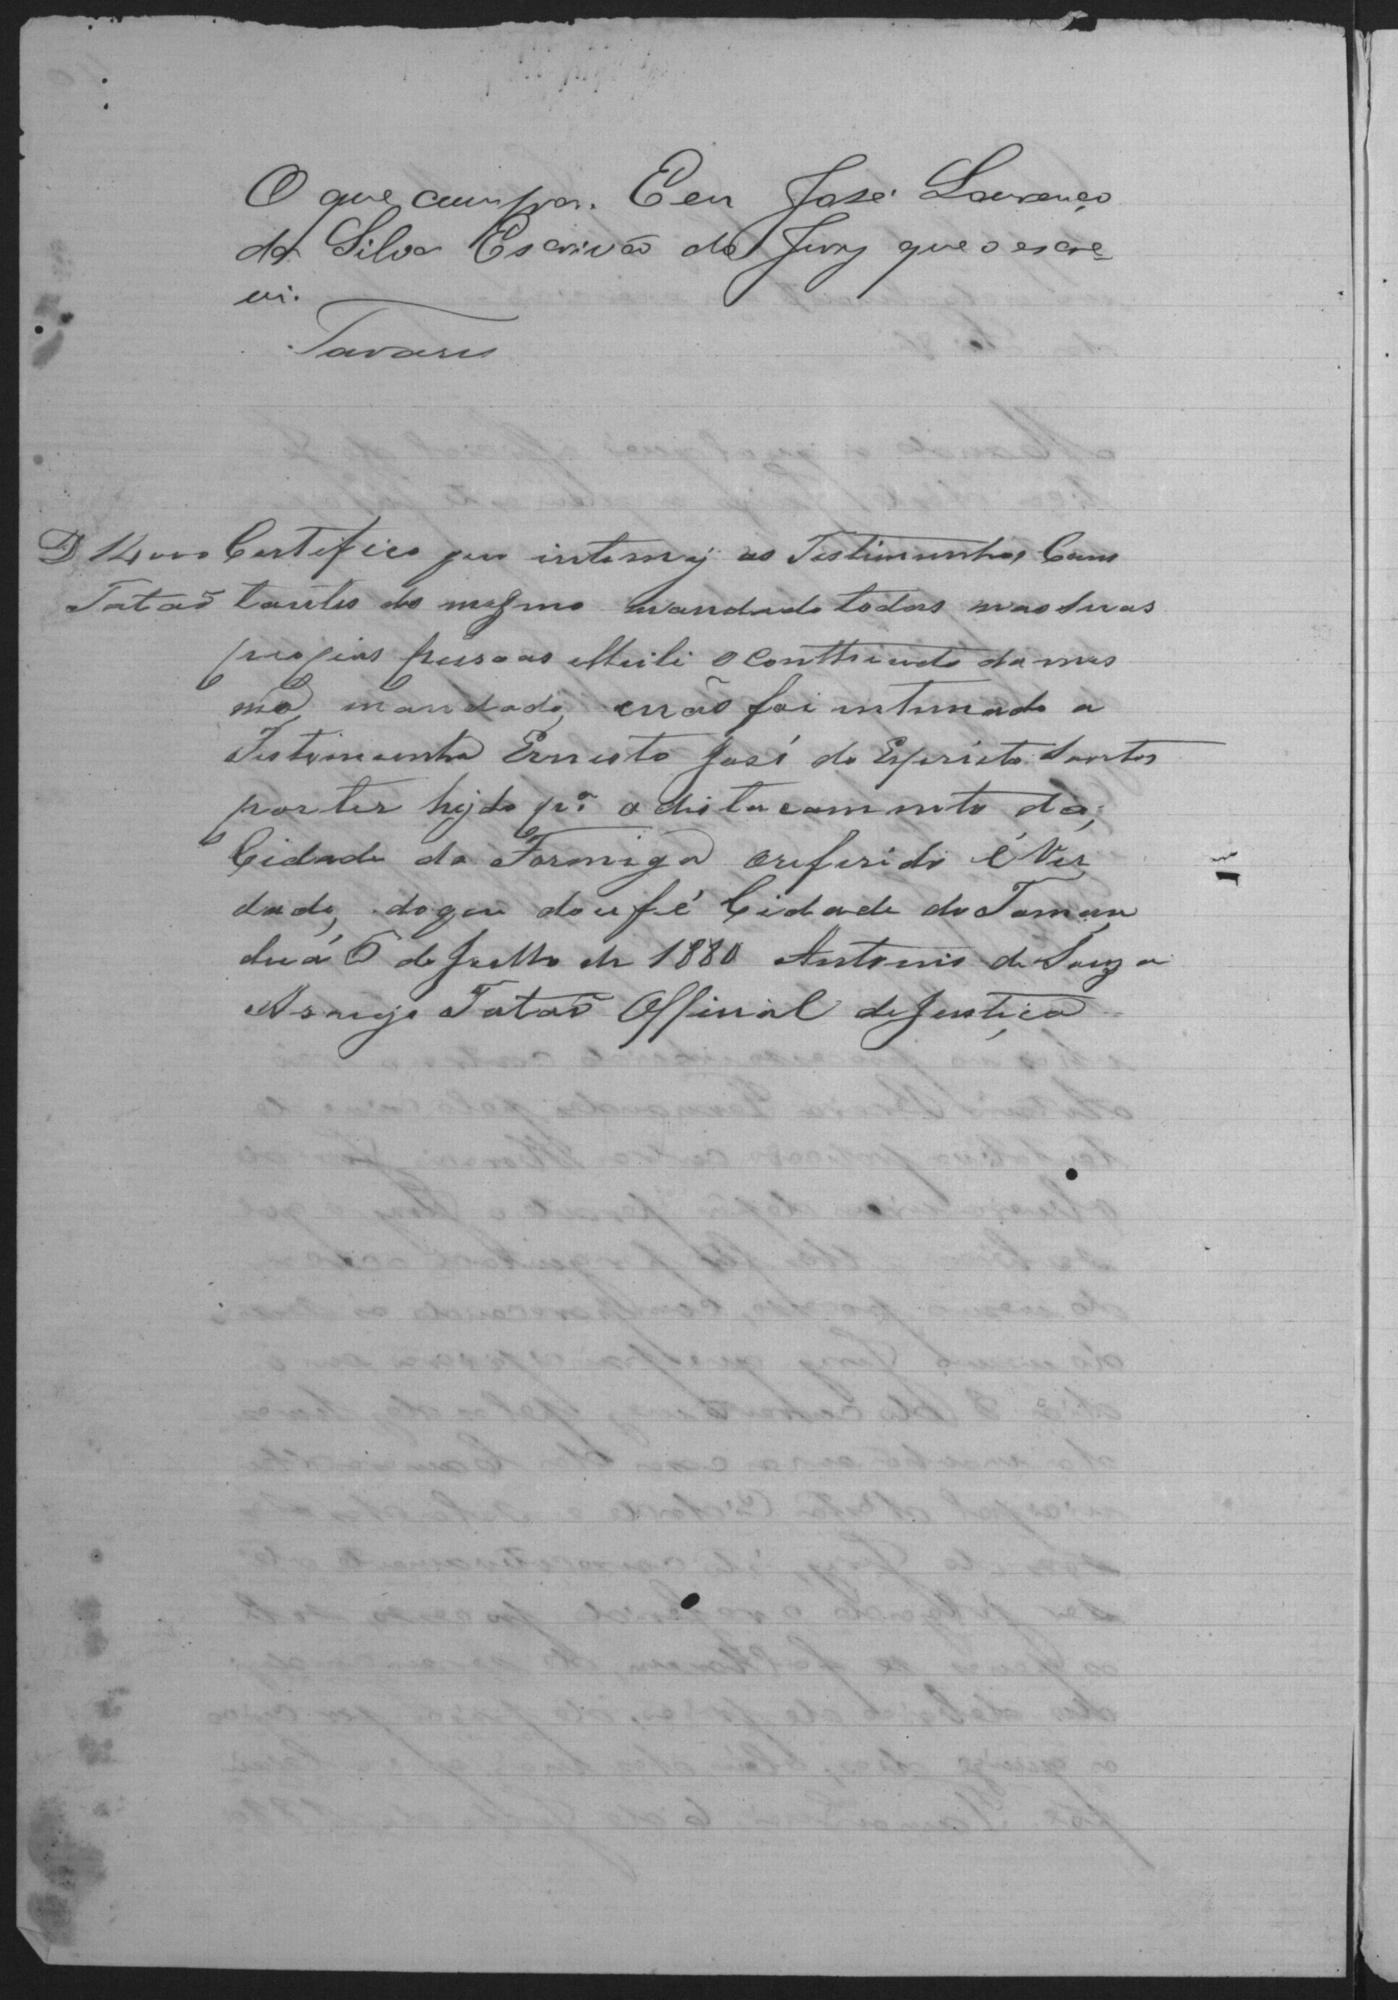 O que cumpra. Eeu José Lourenço
da Silva Escrivão do Jury que o escre=
vi.
Tavares
D 14000 Certifico que intimej as Testimunhas Cons
Tatão tantes do mesmo mandado todas nas suas
propias pessoas e lhe li o conttheudo do mes
mo mandado, e não foi intimado a
Testimunha Ernesto José do Esperito Santos
por ter hido pª. o distacamento da,
Cidade da Formiga o referido é Ver
dade, do que dou fé Cidade do Taman
duá 6 de Julho de 1880 Antonio de Souza
Araujo Tatão Official de Justiça